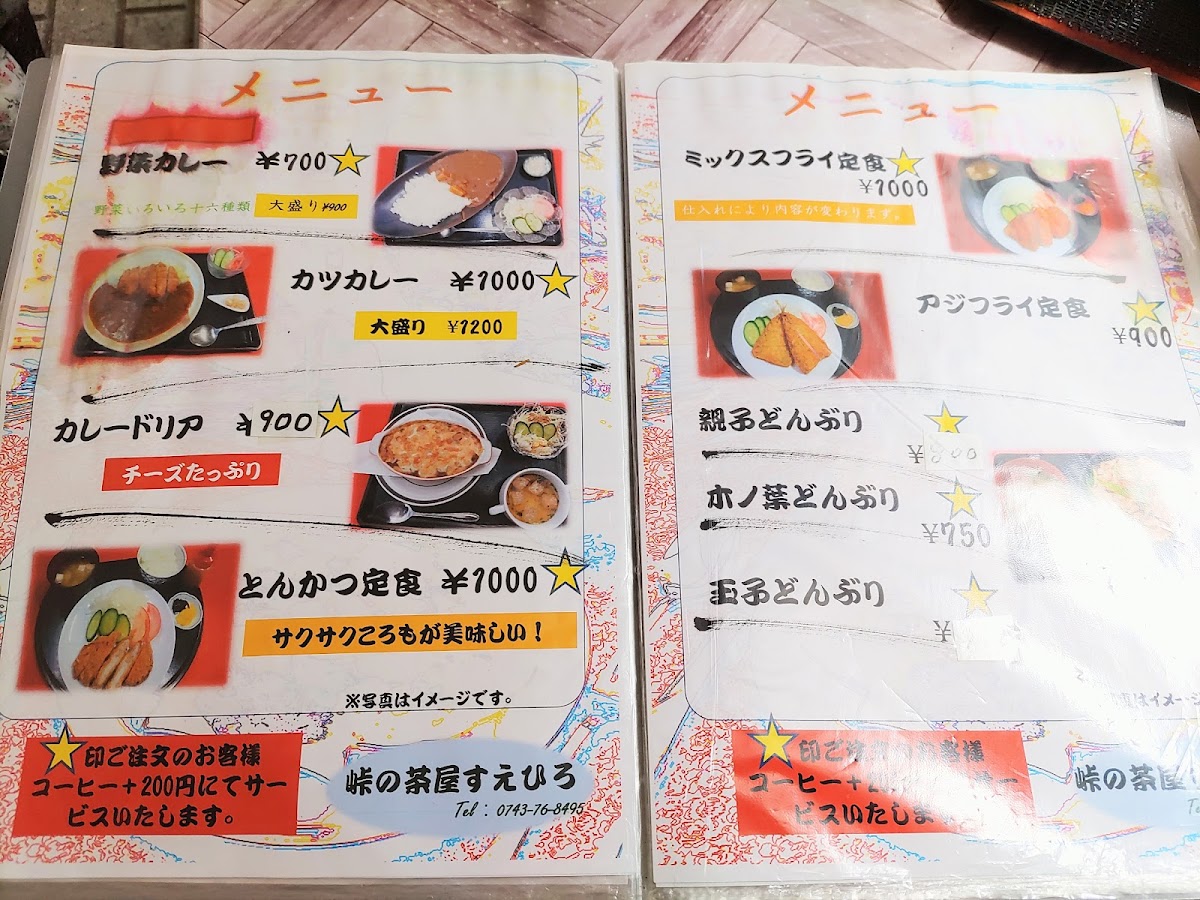 メニュー
野菜カレー ¥700
野菜いろいろ十六種類 大盛り¥900
カツカレー ¥1000
大盛り ¥1200
カレードリア ¥900
チーズたっぷり
とんかつ定食 ¥1000
サクサクころもが美味しい！
※写真はイメージです。
印ご注文のお客様
コーヒー+200円にてサー
ビスいたします。
峠の茶屋すえひろ
Tel : 0743-76-8495
メニュー
ミックスフライ定食
¥1000
仕入れにより内容が変わります。
アジフライ定食
¥900
親子どんぶり
¥
木ノ葉どんぶり
¥750
玉子どんぶり
¥
写真はイメージ
印ご注文のお客様
コーヒー+200円にてサー
ビスいたします
峠の茶屋